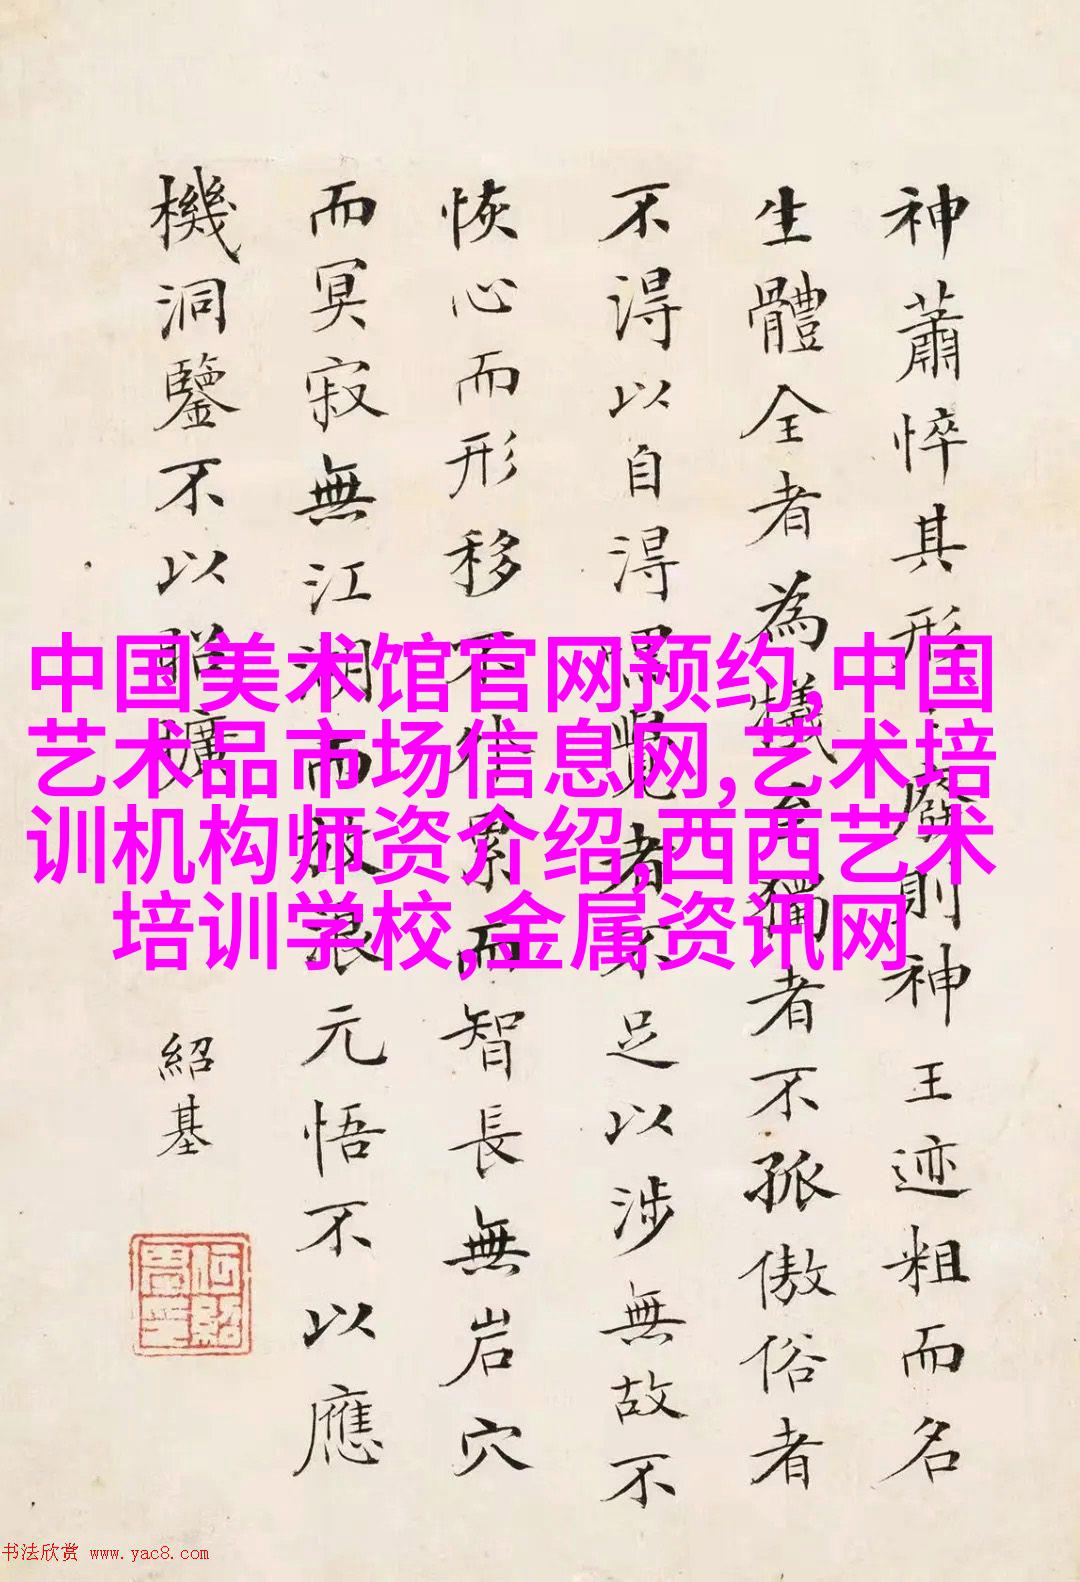 神蕭悴其形廢則神王迹粗而名
生體全者為犧至獨者不孤傲俗者
不得以自得默覺者不足以涉無故不
恢心而形移不累而智長無岩穴
而冥寂無江湖而放浪元悟不以應
機洞鑒不以昭曠
紹基
中国美术馆官网预约,中国
艺术品市场信息网,艺术培
训机构师资介绍,西西艺术
培训学校,金属资讯网
书法欣赏 www.yac8.com